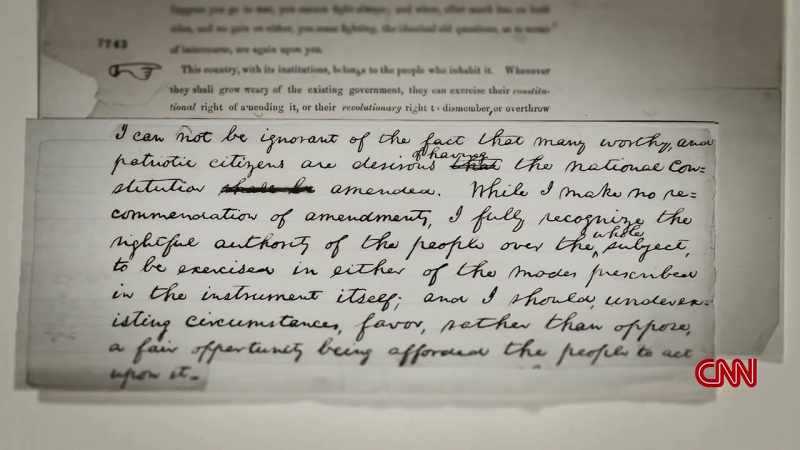 Suppose you go to war, you cannot fight always; and when, after much loss on both
sides, and no gain on either, you cease fighting, the identical old questions, as to terms
of intercourse, are again upon you.
7743
This country, with its institutions, belongs to the people who inhabit it. Whenever
they shall grow weary of the existing government, they can exercise their constitu-
tional right of amending it, or their revolutionary right to dismember, or overthrow
I can not be ignorant of the fact that many worthy, and
of having
patriotic citizens are desirous that the national con=
stitution shall be amended. While I make no re=
commendation of amendments, I fully recognize the
whole
rightful authority of the people over the subject,
to be exercised in either of the modes prescribed
in the instrument itself; and I should, under ex=
isting circumstances, favor, rather than oppose,
a fair oppertunity being afforded the people to act
upon it.
CNN